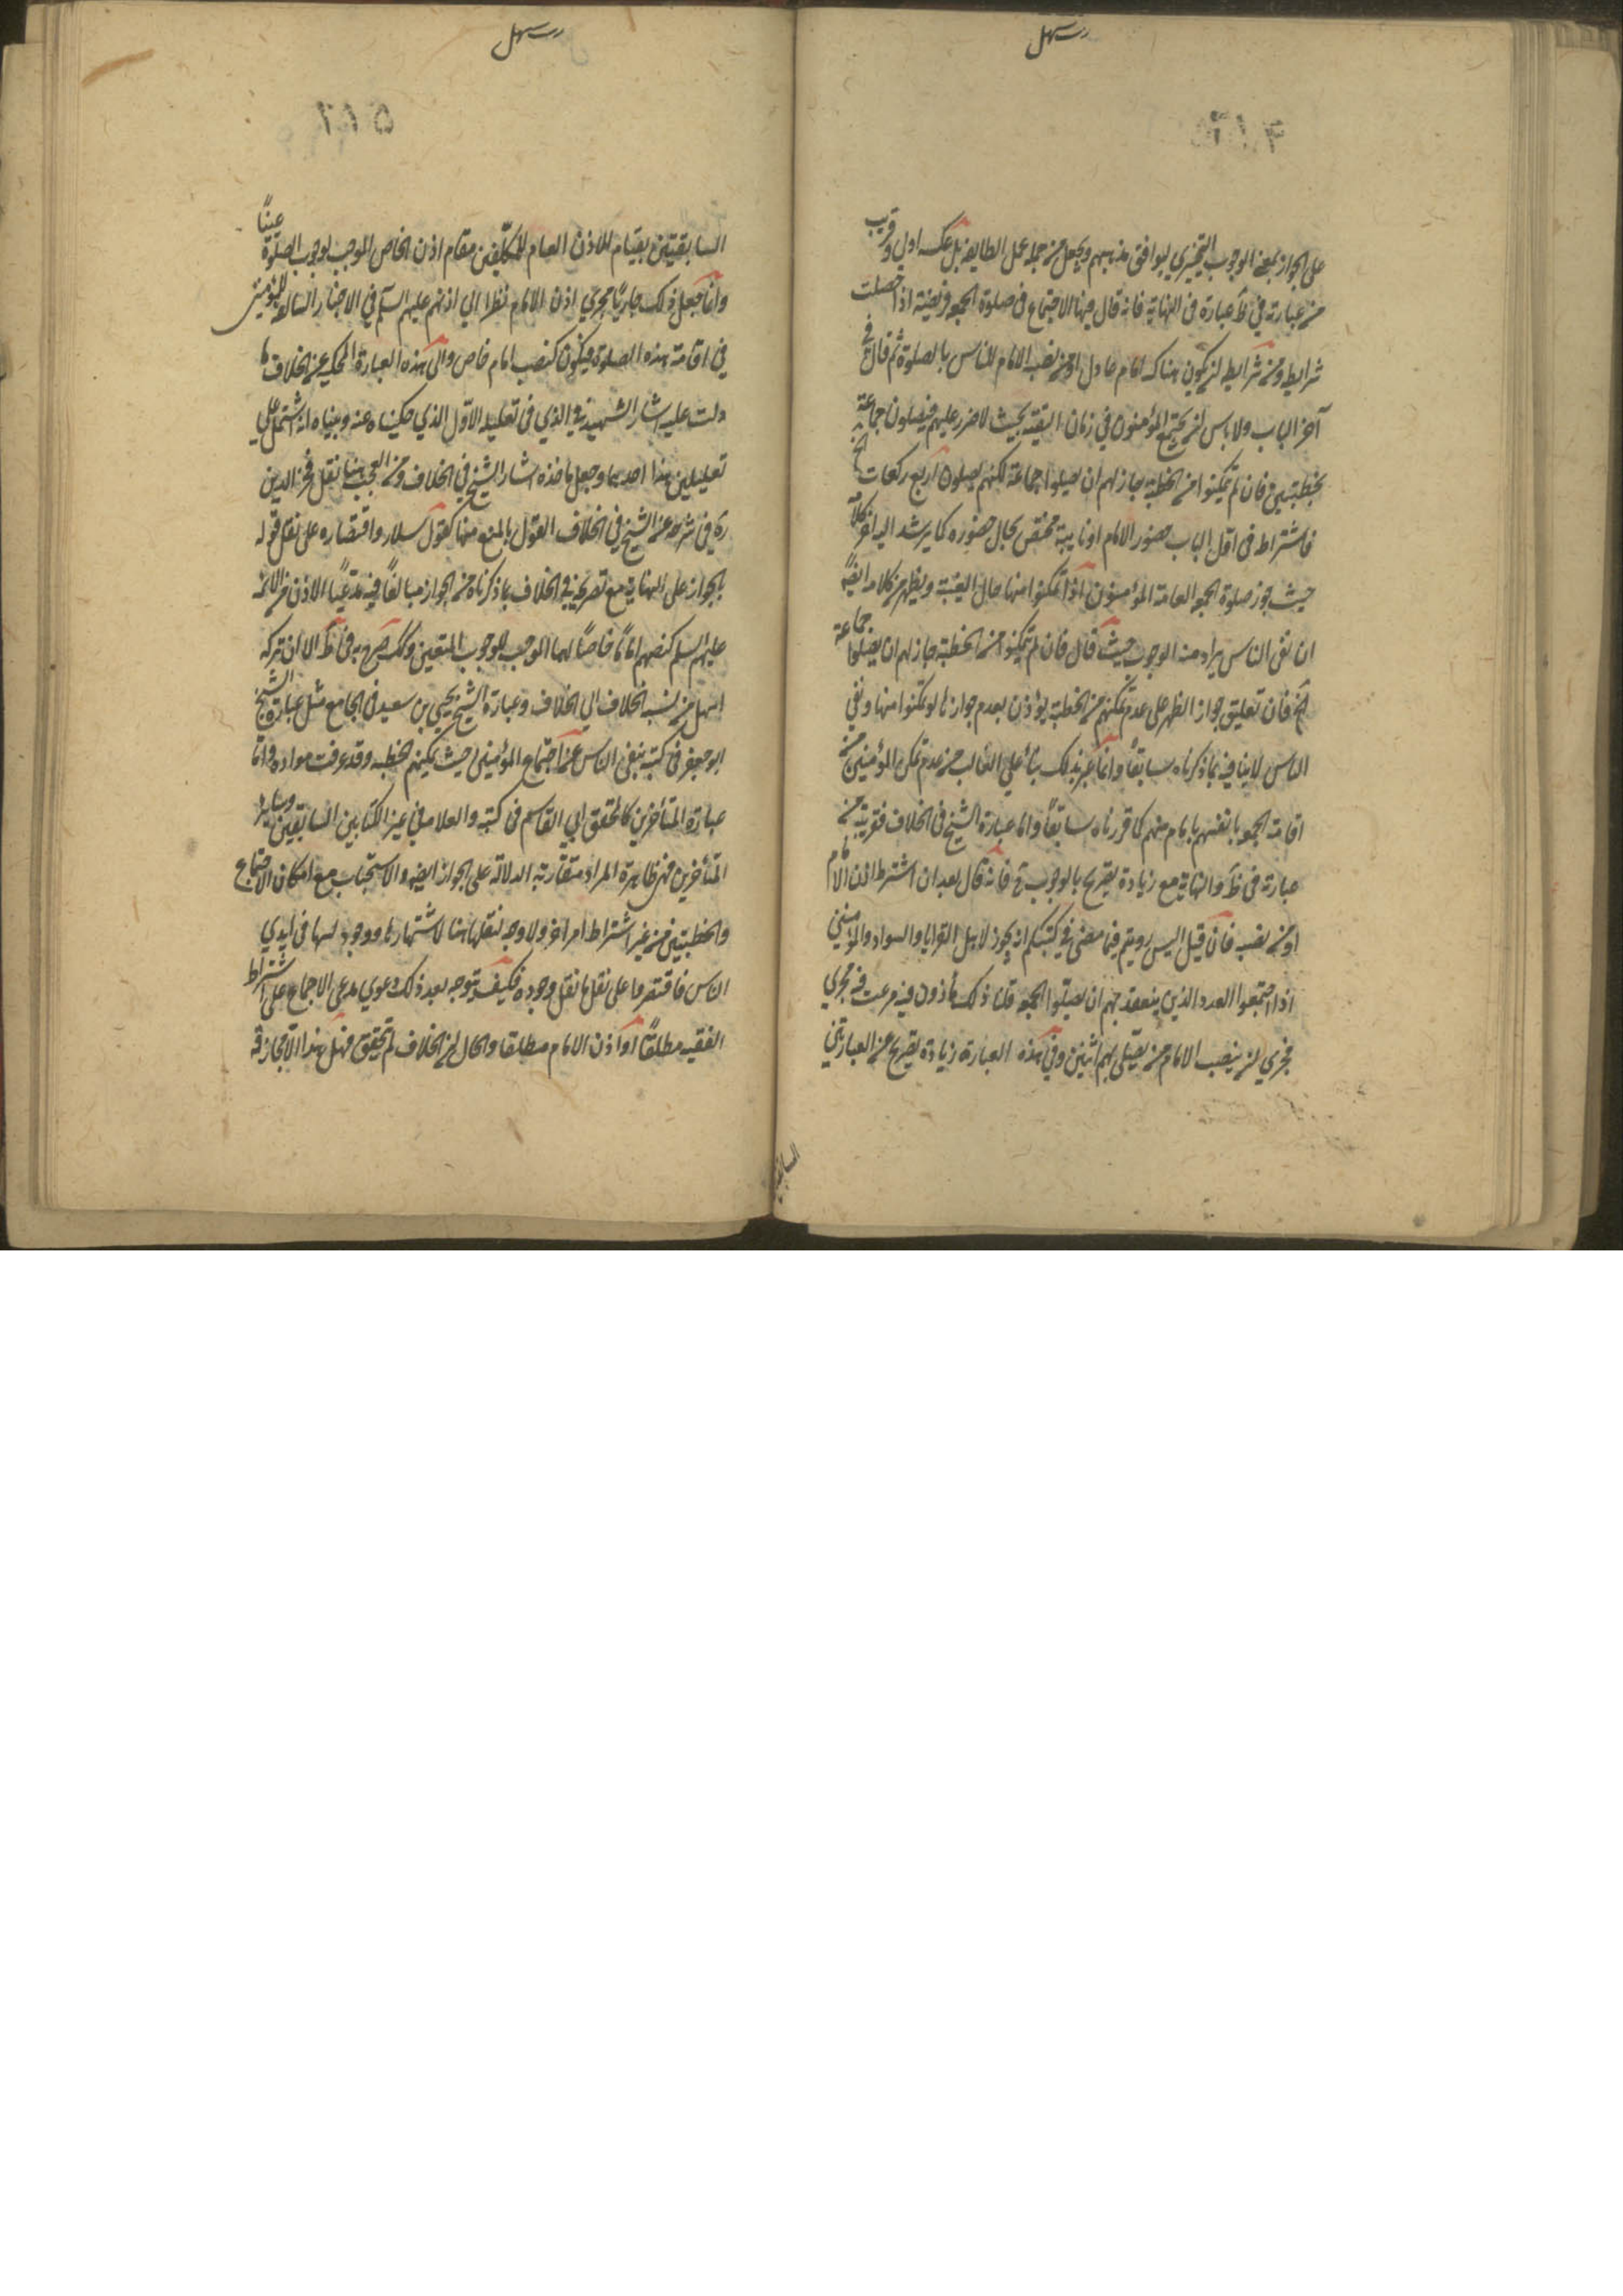 على الجواز بمعنى الوجوب التخييري ليوافق مذهبهم ويجعل من جملة عمل الطايفة بل عكسه اولى وقريب
من عبارته في ط عبارته في النهاية فانه قال فيها الاجتماع في صلوة الجمعة فريضة اذا حصلت
شرايطه ومن شرايطه ان يكون هناك امام عادل او من نصبه الامام للناس بالصلوة ثم قال في
آخر الباب ولا باس ان يجتمع المؤمنون في زمان التقية بحيث لا ضرر عليهم فيصلون جماعة
بخطبتين فان لم يتمكنوا من الخطبة جاز لهم ان يصلوا جماعة لكنهم يصلون اربع ركعات
فاشتراطه في اول الباب حضور الامام او نايبه مختص بحال حضوره كما يرشد اليه آخر كلامه
حيث جوز صلوة الجمعة لعامة المؤمنين اذا تمكنوا منها حال الغيبة ويظهر من كلامه ايضا
ان نفي الباس يراد منه الوجوب حيث قال فان لم يتمكنوا من الخطبة جاز لهم ان يصلوا جماعة
الخ فان تعليق جواز الظهر على عدم تمكنهم من الخطبة يؤذن بعدم جوازها لو تمكنوا منها ونفي
الباس لا ينافيه لما ذكرناه سابقا وانما عبر بذلك بناء على الغالب من عدم تمكن المؤمنين من
اقامة الجمعة بانفسهم بامام منهم كما قررناه سابقا واما عبارة الشيخ في الخلاف فقريبة من
عبارته في ط والنهاية مع زيادة تصريح بالوجوب فانه قال بعد ان اشترط اذن الامام
او من نصبه فان قيل اليس رويتم فيما مضى في كتبكم انه يجوز لاهل القرايا والسواد والمؤمنين
اذا اجتمعوا العدد الذين ينعقد بهم ان يصلوا الجمعة قلنا ذلك مأذون فيه مرغب فيه فجرى
مجرى ان ينصب الامام من يصلي بهم انتهى وفي هذه العبارة زيادة تصريح عن العبارتين
السابقتين
السابقتين بقيام الاذن العام للمكلفين مقام اذن الخاص الموجب لوجوب الصلوة عينا
وانما جعل ذلك جاريا مجرى اذن الامام نظرا الى اذنهم عليهم السلم في الاخبار السالفة للمؤمنين
في اقامة هذه الصلوة فيكون كنصب امام خاص والى هذه العبارة المحكية عن الخلاف وما
دلت عليه اشار الشهيد في الذي في تعليله الاول الذي حكيناه عنه وبيناه انه اشتمل على
تعليلين هذا احدهما وجعل ماخذه اشار الشيخ في الخلاف ومن العجب هنا نقل فخر الدين
ره في شرحه عن الشيخ في الخلاف القول بالمنع منها كقول سلار واقتصاره على نقل قوله
بالجواز على النهاية مع تصريحه في الخلاف بما ذكرناه من الجواز مبالغا فيه مدعيا الاذن من الائمة
عليهم السلم كنصبهم اماما خاصا لها الموجب للوجوب المتعين وكك صرح به في ط الا ان تركه
اسهل من نسبة الخلاف الى الخلاف وعبارة الشيخ يحيى بن سعيد في الجامع مثل عبارة الشيخ
ابو جعفر في كتبه بنفي الباس عن اجتماع المؤمنين حيث يمكنهم الخطبة وقد عرفت مراده واما
عبارة المتأخرين كالمحقق ابي القاسم في كتبه والعلامة في غير الكتابين السابقين وساير
المتأخرين فهي ظاهرة المراد متقاربة الدلالة على الجواز ايضا والاستحباب مع امكان الاجتماع
والخطبتين من غير اشتراط امر آخر ولا وجه لنقلها هنا لاشتهارها ووجودها في ايدي
الناس فاقتصرنا على نقل ما نقل وجوده فكيف يتوجه بعد ذلك دعوى مدعي الاجماع على اشتراط
الفقيه مطلقا او اذن الامام مطلقا والحال ان الخلاف لم يتحقق فهل هذا الا مجازفة